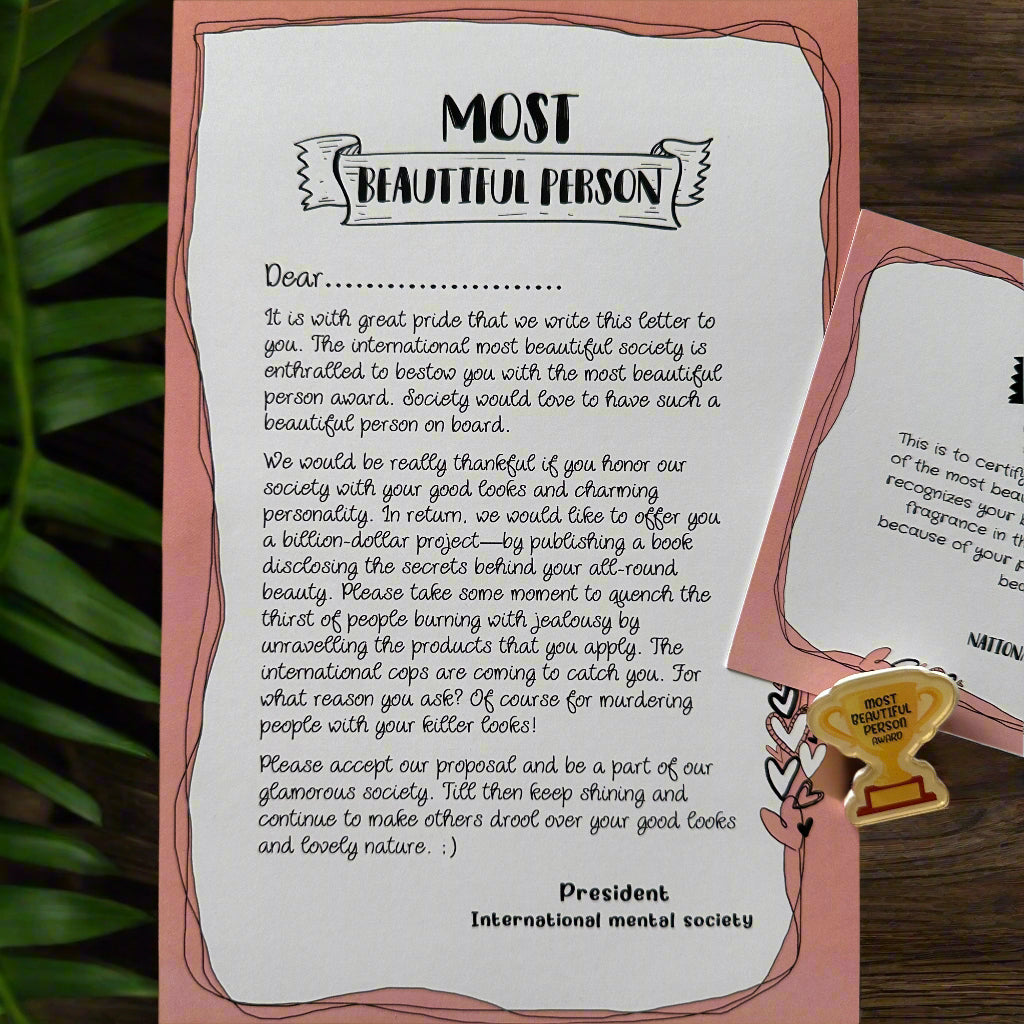 MOST
BEAUTIFUL PERSON
Dear.......................
It is with great pride that we write this letter to
you. The international most beautiful society is
enthralled to bestow you with the most beautiful
person award. Society would love to have such a
beautiful person on board.
We would be really thankful if you honor our
society with your good looks and charming
personality. In return, we would like to offer you
a billion-dollar project—by publishing a book
disclosing the secrets behind your all-round
beauty. Please take some moment to quench the
thirst of people burning with jealousy by
unravelling the products that you apply. The
international cops are coming to catch you. For
what reason you ask? Of course for murdering
people with your killer looks!
Please accept our proposal and be a part of our
glamorous society. Till then keep shining and
continue to make others drool over your good looks
and lovely nature. :)
President
International mental society
This is to certify
of the most beau
recognizes your b
fragrance in th
because of your p
bec
NATIONA
MOST
BEAUTIFUL
PERSON
AWARD